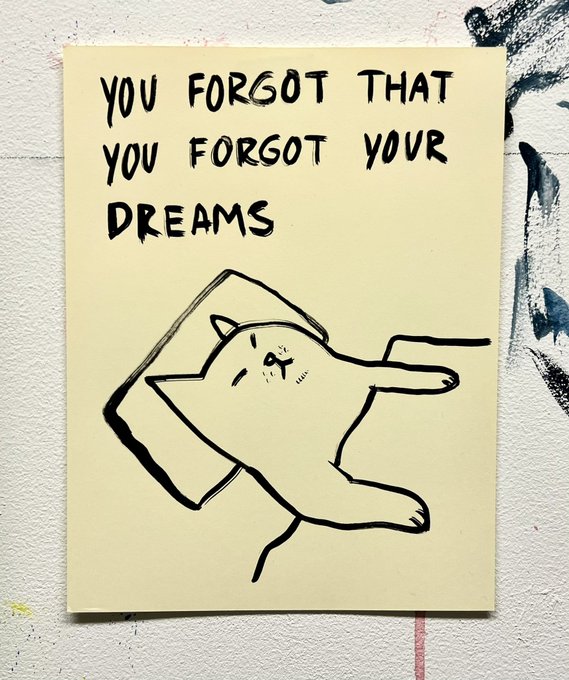 YOU FORGOT THAT
YOU FORGOT YOUR
DREAMS